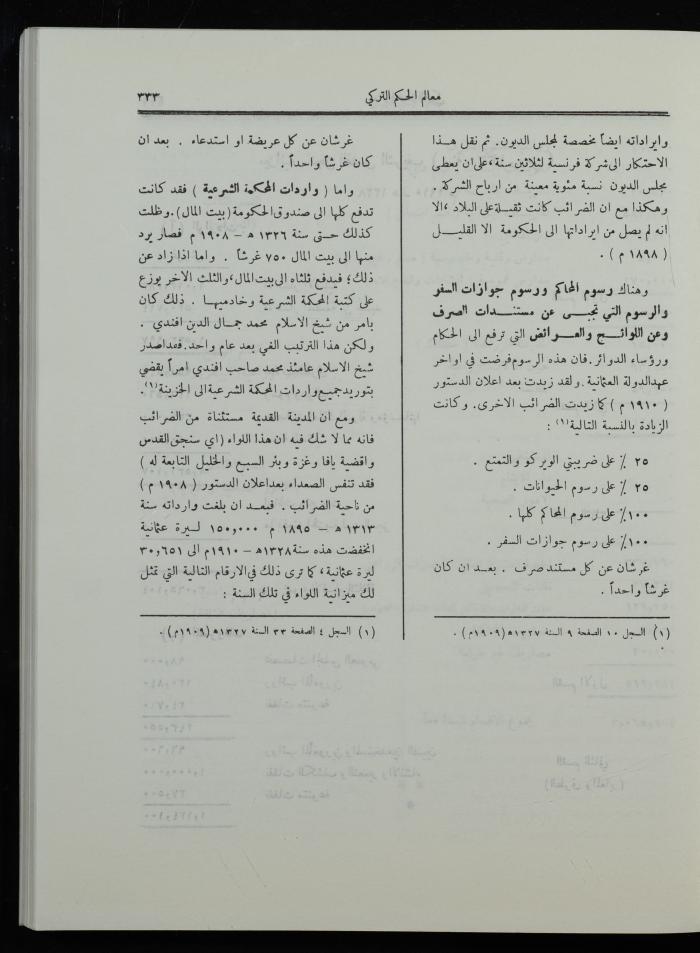 معالم الحكم التركي
٣٣٣
وايراداته ايضاً مخصصة لمجلس الديون. ثم نقل هـذا
الاحتكار الى شركة فرنسية لثلاثين سنة، على ان يعطى
مجلس الديون نسبة مئوية معينة من ارباح الشركة .
وهكذا مع ان الضرائب كانت ثقيلة على البلاد ، الا
انه لم يصل من ايراداتها الى الحكومة الا القليـل
( ١٨٩٨ م ) .
وهناك رسوم المحاكم ورسوم جوازات السفر
والرسوم التي تجبى عن مستنـدات الصرف
وعن اللوائـح والعـرائض التي ترفع الى الحكام
ورؤساء الدوائر. فان هذه الرسوم فرضت في اواخر
عهد الدولة العثمانية . ولقد زيدت بعد اعلان الدستور
( ١٩١٠ م ) كما زيدت الضرائب الاخرى. وكانت
الزيادة بالنسبة التالية (١) :
٢٥ ٪ على ضريبتي الويركو والتمتع .
٢٥ ٪ على رسوم الحيوانات .
١٠٠٪ على رسوم المحاكم كلها .
١٠٠٪ على رسوم جوازات السفر .
غرشان عن كل مستند صرف . بعـد ان كان
غرشاً واحداً .
(١) السجل ١٠ الصفحة ٩ السنة ١٣٢٧ ه (١٩٠٩م) .
غرشان عن كل عريضة او استدعاء . بعد ان
كان غرشاً واحداً .
واما ( واردات المحكمة الشرعية ) فقد كانت
تدفع كلها الى صندوق الحكومة (بيت المال). وظلت
كذلك حـتى سنة ١٣٢٦ ه – ١٩٠٨ م فصار يرد
منها الى بيت المال ٧٥٠ غرشاً . واما اذا زاد عن
ذلك؛ فيدفع ثلثاه الى بيت المال، والثلث الاخر يوزع
على كتبة المحكمة الشرعية وخادميهـا . ذلك كان
بامر من شيخ الاسلام محمد جمـال الدين افندي .
ولكن هذا الترتيب الغي بعد عام واحد. فقد اصدر
شيخ الاسلام عامئذ محمد صاحب افندي امراً يقضي
بتوريد جميع واردات المحكمة الشرعية الى الخزينة (١).
ومع ان المدينة القديمة مستثناة من الضرائب
فانه مما لا شك فيه ان هذا اللواء ( اي سنجق القدس
واقضية يافا وغزة وبئر السبع والخليل التابعة له )
فقد تنفس الصعداء بعد اعلان الدستور ( ١٩٠٨ م )
من ناحية الضرائب . فبعـد ان بلغت وارداته سنة
١٣١٣ ه – ١٨٩٥ م ١٥٠,٠٠٠ لـيرة عثمانية
انخفضت هذه سنة ١٣٢٨ه – ١٩١٠م الى ٣٠,٦٥١
ليرة عثمانية، كما ترى ذلك في الارقام التالية التي تمثل
لك ميزانية اللواء في تلك السنة :
(١) السجل ٤ الصفحة ٣٣ السنة ١٣٢٧ ه (١٩٠٩م) .